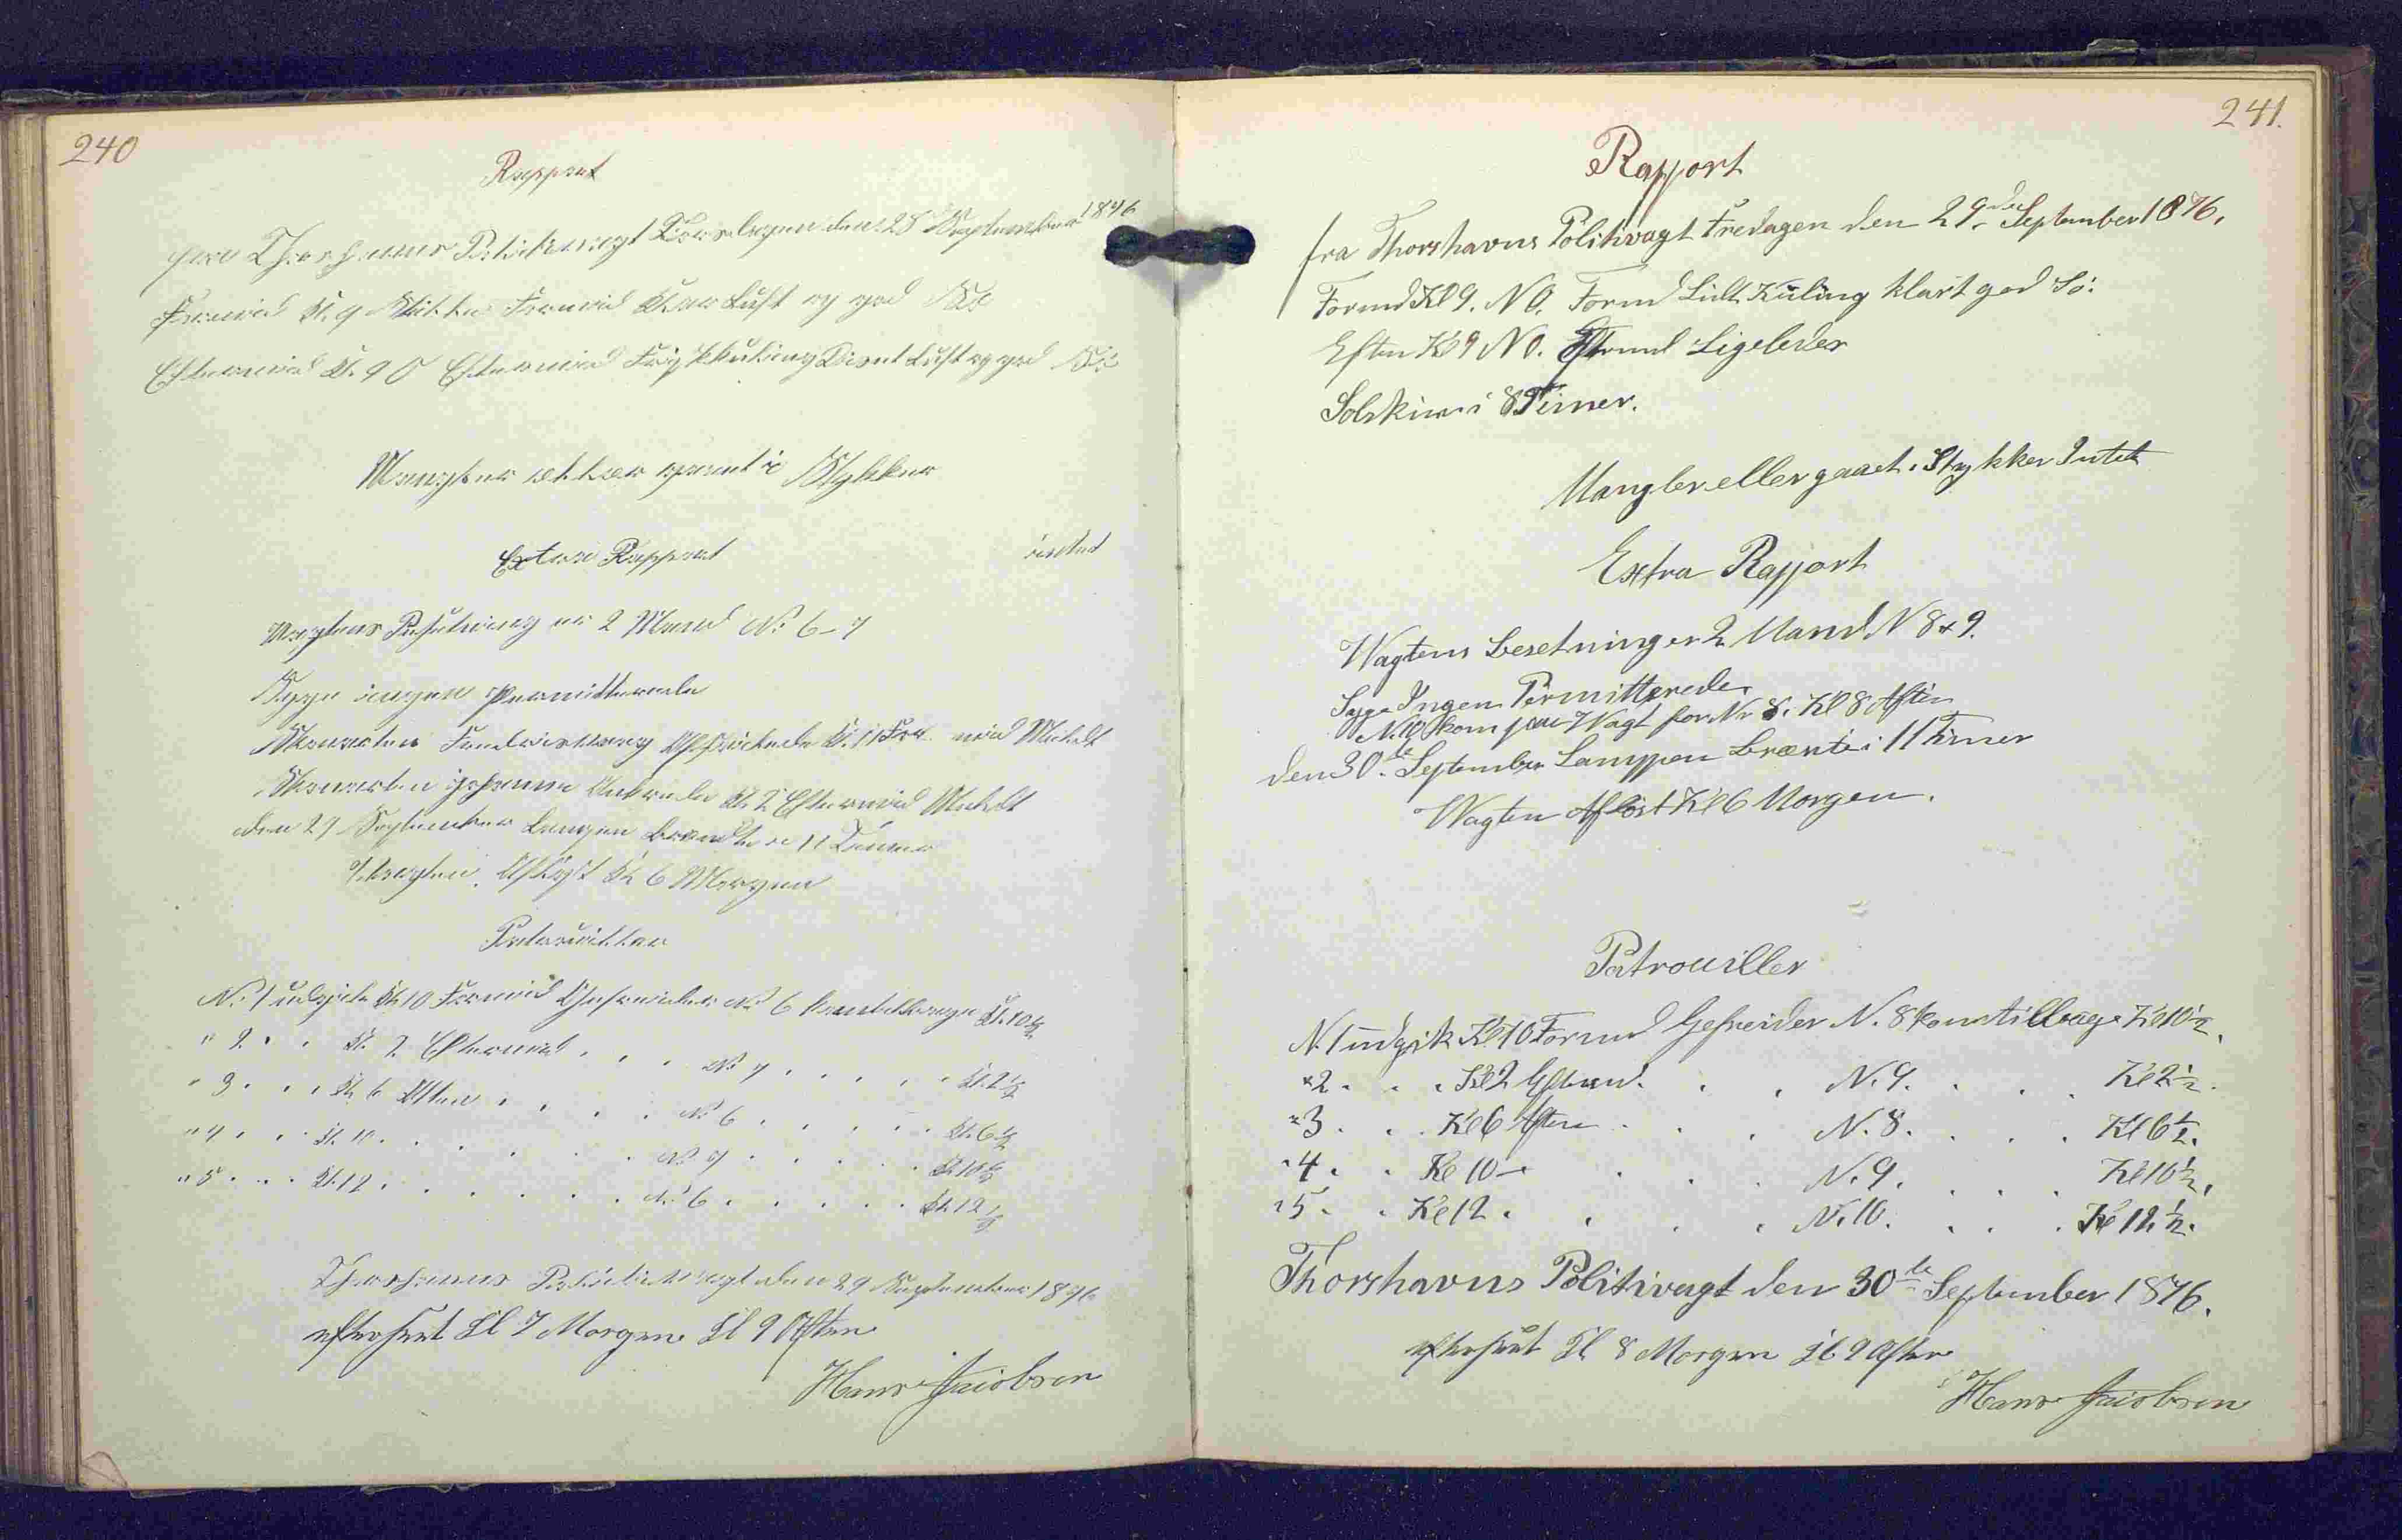 240
Rapport
fra Thorshavns Politivagt Torsdagen den 28 September 1876
Formid Kl. 9 Stille Formid Klar Luft og god Sø
Eftermid Kl. 9 O Eftermid Frisk Kuling Diset Luft og god Sø
Mangler eller gaaet i Stykker
Extra Rapport intet
Vagtens Besetning er 2 Mand No 6-7
Syge ingen Permitterede
Skonnerten Afseilede Kl. 11 For mid
Skonnerten Johanne Ankrede Kl. 2 Eftermid
den 29 September Lampen brendte i 11 Timer
Vagten Afløst Kl. 6 Morgen
Patrouiller
No 1 udgik Kl. 10 Formid Gefreider No 6 kom tilbage Kl. 10½
" 2 . . Kl. 2 Eftermid . . . No 7 . . . . . Kl. 2½
" 3 . . . Kl. 6 Aften . . . . No 6 . . . . . Kl. 6½
" 4 . . . Kl. 10 . . . . . No 7 . . . . . Kl. 10½
" 5 . . . Kl. 12 . . . . . No 6 . . . . . Kl. 12½
Thorshavns Politivagt den 29 September 1876
efterseet Kl 7 Morgen Kl 9 Aften
Hans Jacobsen
241.
Rapport
fra Thorshavns Politivagt Fredagen den 29de September 1876.
Formd Kl 9. NO. Formd Lidt Kuling klart god Sö.
Eften Kl 9 NO. Eftmd Ligeledes
Solskin i 8 Timer.
Mangler eller gaaet i Stykker Intet
Extra Rapport
Wagtens Besetning er 2 Mand N 8 & 9.
Syge Ingen Permitterede.
N. 10 kom paa Wagt for Nr 8. Kl 8 Aften
den 30te September Lamppen Brænte i 11 Timer
Wagten Aflöst Kl 6 Morgen.
Patrouiller
N. 1 udgik Kl 10 Formd Gefreider N. 8 kom tilbage Kl 10½.
" 2 . . . Kl 2 Eftmd . . . N. 9. . . . Kl 2½.
" 3 . . . Kl 6 Aften . . . N. 8. . . . Kl 6½.
" 4 . . Kl 10 - . . . N. 9. . . . Kl 10½.
" 5 . . Kl 12 . . . . N. 10. . . . Kl 12½.
Thorshavns Politivagt den 30te September 1876.
efterseet Kl 8 Morgen Kl 9 Aften
Hans Jacobsen